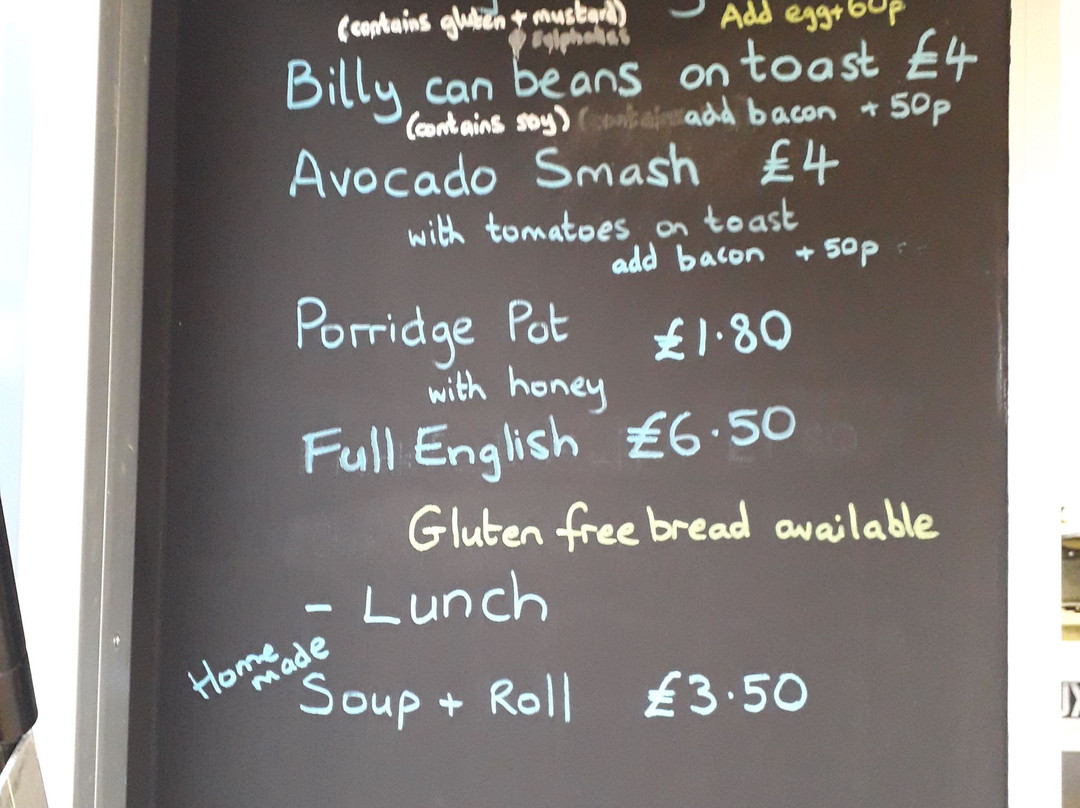 (contains gluten + mustard) Add egg + 60p
+ sulphates
Billy can beans on toast £4
(contains soy) (contains add bacon + 50p
Avocado Smash £4
with tomatoes on toast
add bacon + 50p
Porridge Pot £1.80
with honey
Full English £6.50
Gluten free bread available
- Lunch
Home made
Soup + Roll £3.50